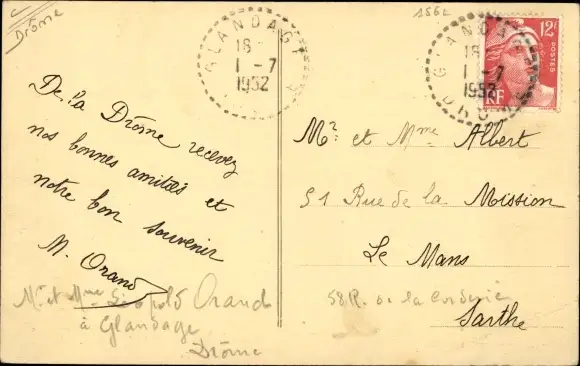 Drôme
GLANDAGE
18
1-7
1952
1562
GLANDAGE
18
1-7
1952
DROME
12F
POSTES
RF
De la Drôme recevez
nos bonnes amitiés et
notre bon souvenir
M. Orand
Mr et Mme Léopold Orand
à Glandage
Drôme
Mr et Mme Albert
51 Rue de la Mission
Le Mans
58 R. de la Corderie
Sarthe